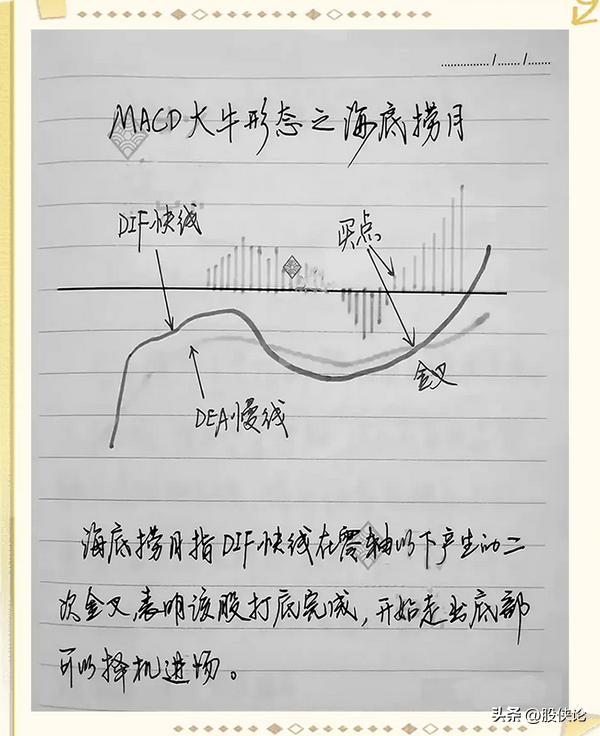 ............... / ....... / .......
MACD大牛形态之海底捞月
DIF快线
买点
金叉
DEA慢线
海底捞月指DIF快线在零轴以下产生的二
次金叉,表明该股打底完成,开始走出底部
可以择机进场。
头条 @股侠论